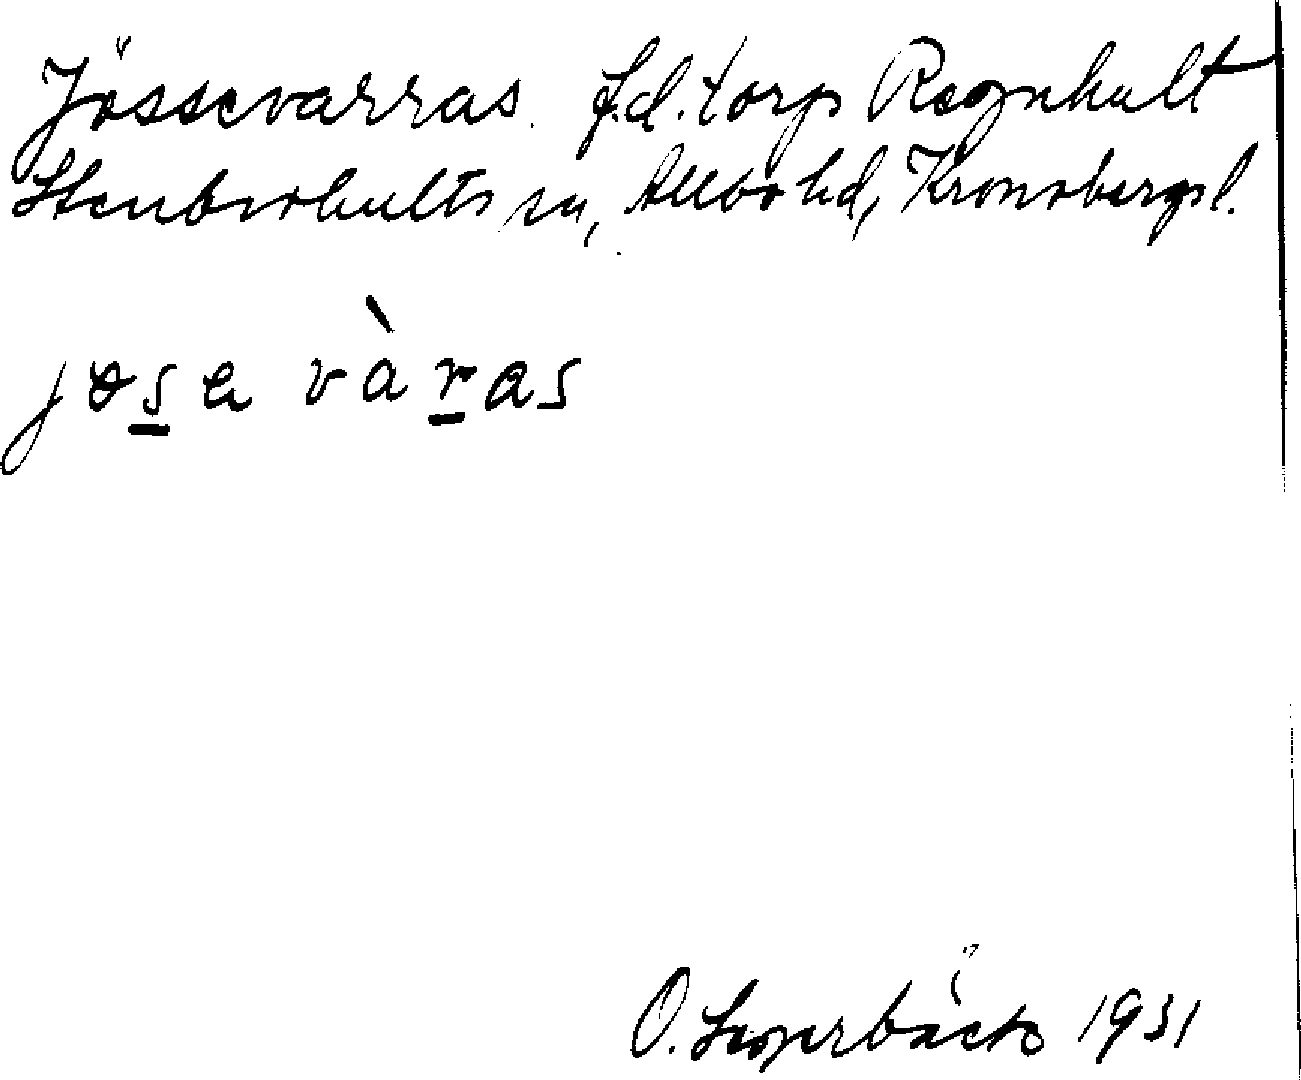 Jössevarras. f.d. torp Regnhult
Stenbrohults sn, Allbo hd, Kronobergs l.
jøsa vàras
O. Lagerbäck 1931